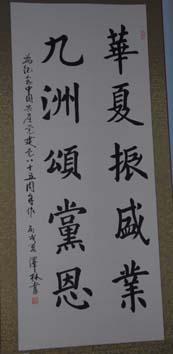 華夏振盛業
九洲頌黨恩
為紀念中國共產黨建黨八十五周年作
丙戌夏 澤林書